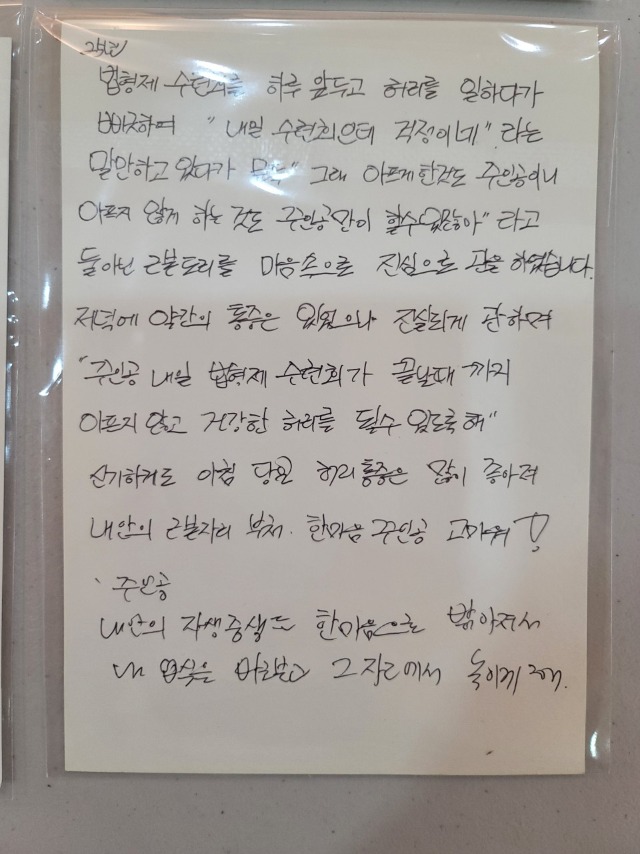 법형제 수련회를 하루 앞두고 허리를 일하다가
삐끗하며 "내일 수련회인데 걱정이네" 라는
말안하고 있다가 문득" 그래 아프게한것도 주인공이니
아프지 않게 하는 것도 주인공만이 할수있잖아" 라고
둘아닌 근본도리를 마음속으로 진심으로 관을 하였습니다.
저녁에 약간의 통증은 있었으나 진실되게 관하며
"주인공 내일 법형제 수련회가 끝날때 까지
아프지 않고 건강한 허리를 될수 있도록 해"
신기하게도 아침 당일 허리통증은 많이 좋아져
내안의 근본자리 부처. 한마음 주인공 고마워!
주인공
내안의 자생중생도 한마음으로 밝아져서
내 모습은 바로보고 그 자리에서 녹이게 해.